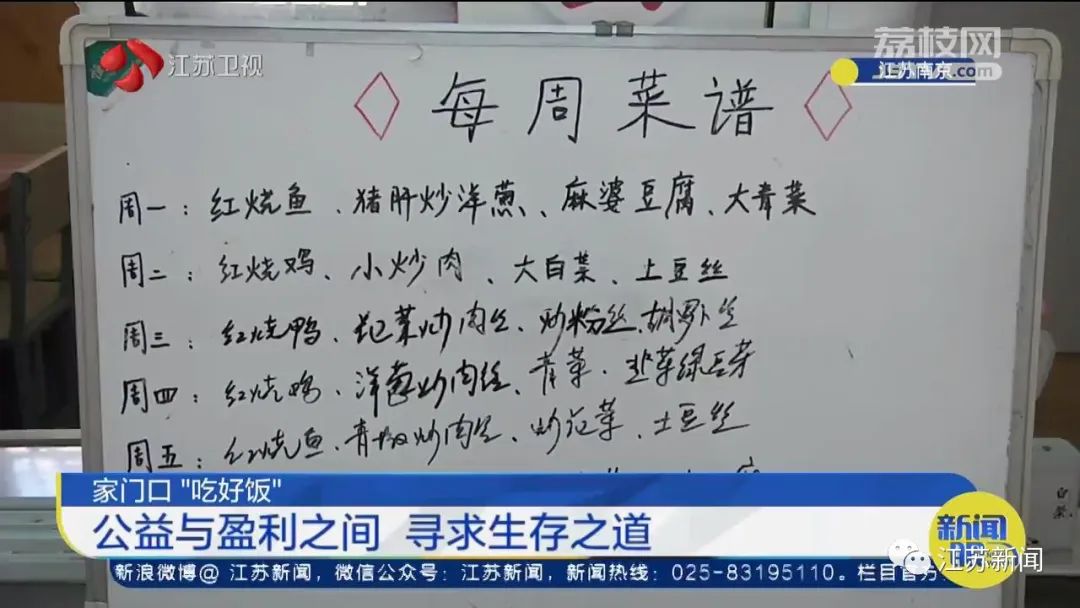 江苏卫视
荔枝网
.com
江苏南京
每周菜谱
周一：红烧鱼、猪肝炒洋葱、麻婆豆腐、大青菜
周二：红烧鸡、小炒肉、大白菜、土豆丝
周三：红烧鸭、花菜炒肉丝、炒粉丝、胡萝卜丝
周四：红烧鸡、洋葱炒肉丝、青菜、韭菜绿豆芽
周五：红烧鱼、青椒炒肉丝、炒花菜、土豆丝
白菜
家门口 "吃好饭"
公益与盈利之间 寻求生存之道
新闻
江苏新闻
新浪微博@ 江苏新闻，微信公众号：江苏新闻，新闻热线：025-83195110。栏目官方